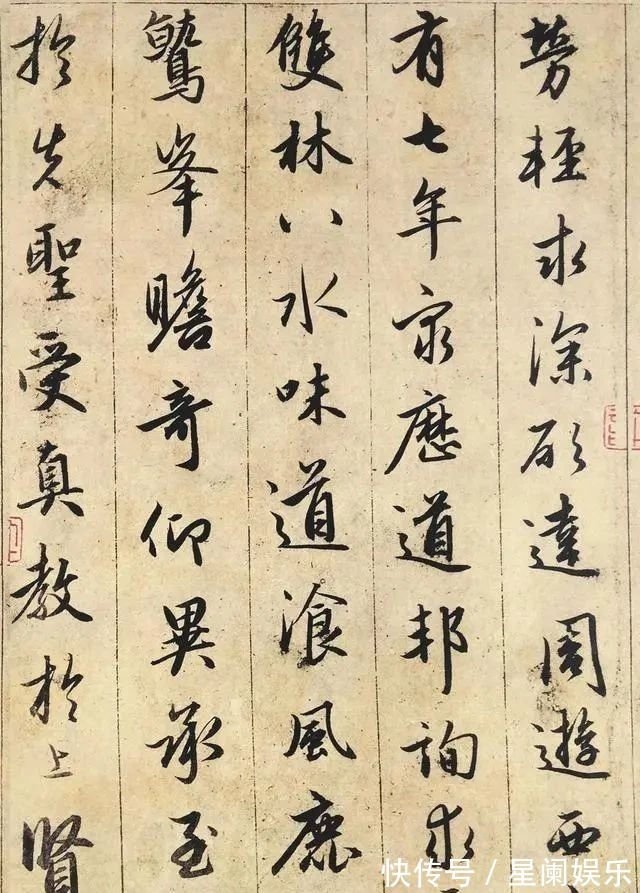 劳輕求深願達周遊西
有七年窮歷道邦詢求
雙林八水味道飡風鹿
鷲峯瞻奇仰異承至
於先聖受真教於上賢
快传号 / 星阑娱乐